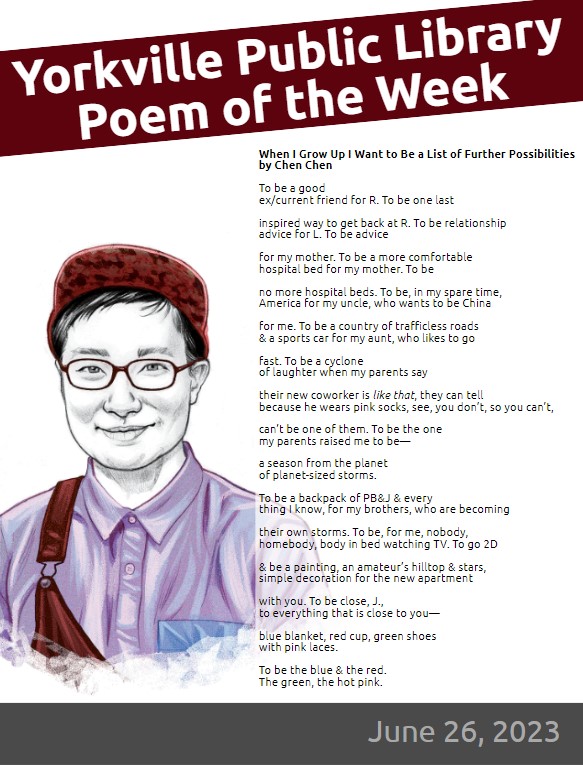 Yorkville Public Library
Poem of the Week
When I Grow Up I Want to Be a List of Further Possibilities
by Chen Chen
To be a good
ex/current friend for R. To be one last
inspired way to get back at R. To be relationship
advice for L. To be advice
for my mother. To be a more comfortable
hospital bed for my mother. To be
no more hospital beds. To be, in my spare time,
America for my uncle, who wants to be China
for me. To be a country of trafficless roads
& a sports car for my aunt, who likes to go
fast. To be a cyclone
of laughter when my parents say
their new coworker is like that, they can tell
because he wears pink socks, see, you don’t, so you can’t,
can’t be one of them. To be the one
my parents raised me to be—
a season from the planet
of planet-sized storms.
To be a backpack of PB&J & every
thing I know, for my brothers, who are becoming
their own storms. To be, for me, nobody,
homebody, body in bed watching TV. To go 2D
& be a painting, an amateur’s hilltop & stars,
simple decoration for the new apartment
with you. To be close, J.,
to everything that is close to you—
blue blanket, red cup, green shoes
with pink laces.
To be the blue & the red.
The green, the hot pink.
June 26, 2023